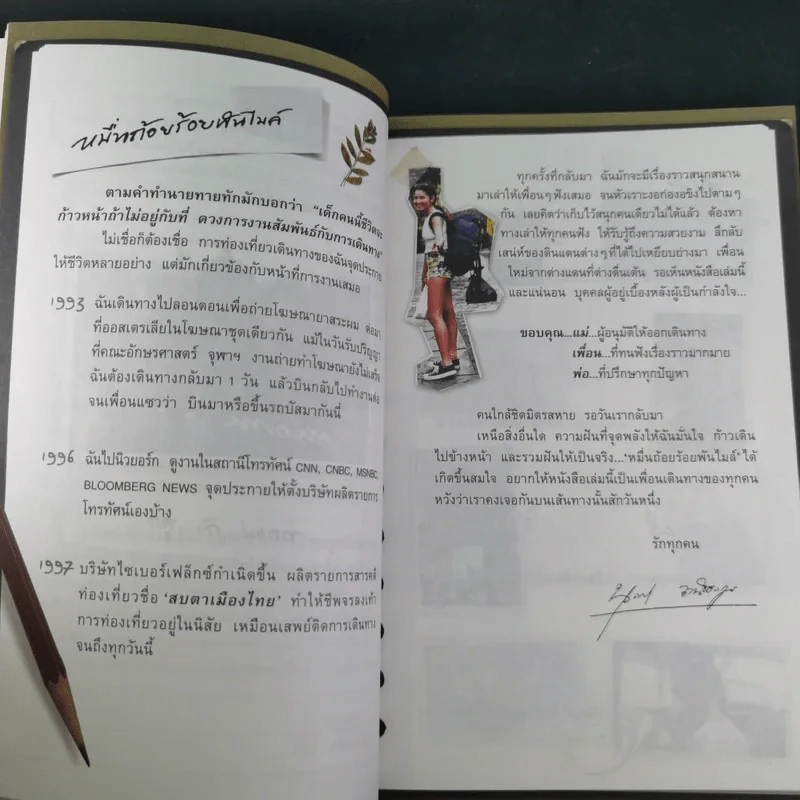 หมื่นถ้อยร้อยพันไมล์
ตามคำทำนายทายทักมักบอกว่า “เด็กคนนี้ชีวิตจะ
ก้าวหน้าถ้าไม่อยู่กับที่ ดวงการงานสัมพันธ์กับการเดินทาง”
ไม่เชื่อก็ต้องเชื่อ การท่องเที่ยวเดินทางของฉันจุดประกาย
ให้ชีวิตหลายอย่าง แต่มักเกี่ยวข้องกับหน้าที่การงานเสมอ
1993 ฉันเดินทางไปลอนดอนเพื่อถ่ายโฆษณายาสระผม ต่อมา
ที่ออสเตรเลียในโฆษณาชุดเดียวกัน แม้ในวันรับปริญญา
ที่คณะอักษรศาสตร์ จุฬาฯ งานถ่ายทำโฆษณายังไม่เสร็จ
ฉันต้องเดินทางกลับมา 1 วัน แล้วบินกลับไปทำงานต่อ
จนเพื่อนแซวว่า บินมาหรือขึ้นรถบัสมากันนี่
1996 ฉันไปนิวยอร์ก ดูงานในสถานีโทรทัศน์ CNN, CNBC, MSNBC,
BLOOMBERG NEWS จุดประกายให้ตั้งบริษัทผลิตรายการ
โทรทัศน์เองบ้าง
1997 บริษัทไซเบอร์เฟล็กซ์กำเนิดขึ้น ผลิตรายการสารคดี
ท่องเที่ยวชื่อ ‘สบตาเมืองไทย’ ทำให้ชีพจรลงเท้า
การท่องเที่ยวอยู่ในนิสัย เหมือนเสพย์ติดการเดินทาง
จนถึงทุกวันนี้
ทุกครั้งที่กลับมา ฉันมักจะมีเรื่องราวสนุกสนาน
มาเล่าให้เพื่อนๆฟังเสมอ จนหัวเราะงอก่องอขิงไปตามๆ
กัน เลยคิดว่าเก็บไว้สนุกคนเดียวไม่ได้แล้ว ต้องหา
ทางเล่าให้ทุกคนฟัง ให้รับรู้ถึงความสวยงาม ลึกลับ
เสน่ห์ของดินแดนต่างๆที่ได้ไปเหยียบย่างมา เพื่อน
ใหม่จากต่างแดนที่ต่างตื่นเต้น รอเห็นหนังสือเล่มนี้
และแน่นอน บุคคลผู้อยู่เบื้องหลังผู้เป็นกำลังใจ...
ขอบคุณ...แม่...ผู้อนุมัติให้ออกเดินทาง
เพื่อน...ที่ทนฟังเรื่องราวมากมาย
พ่อ...ที่ปรึกษาทุกปัญหา
คนใกล้ชิดมิตรสหาย รอวันเรากลับมา
เหนือสิ่งอื่นใด ความฝันที่จุดพลังให้ฉันมั่นใจ ก้าวเดิน
ไปข้างหน้า และรวมฝันให้เป็นจริง...‘หมื่นถ้อยร้อยพันไมล์’ ได้
เกิดขึ้นสมใจ อยากให้หนังสือเล่มนี้เป็นเพื่อนเดินทางของทุกคน
หวังว่าเราคงเจอกันบนเส้นทางนั้นสักวันหนึ่ง
รักทุกคน